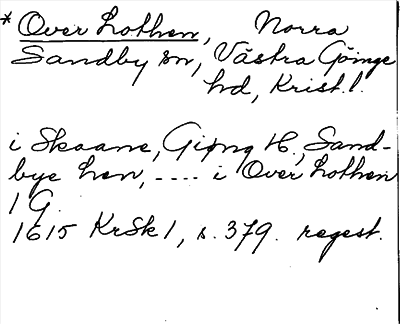 * Över Lothen, Norra
Sandby sn, Västra Göinge
hd, Krist. l.
i Skaane, Giøng H., Sand-
bye hen, ---- i Offuer Lothen
1 G.
1615 KrSk 1, s. 379. regest.